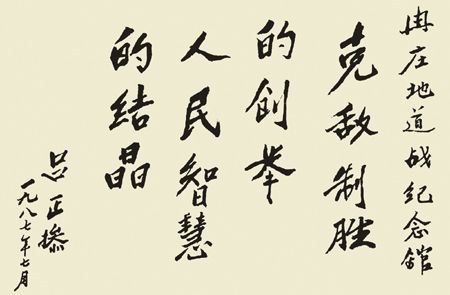 冉庄地道战纪念馆
克敌制胜
的创举
人民智慧
的结晶
吕正操
一九八七年七月